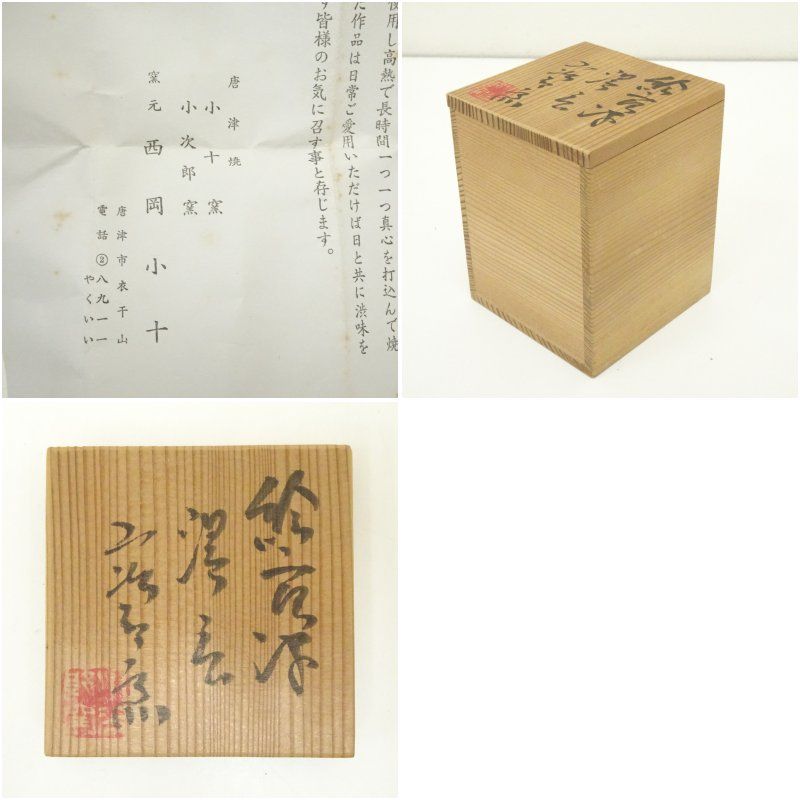 使用し高熱で長時間一つ一つ真心を打込んで焼
た作品は日常ご愛用いただけば日と共に渋味を
皆様のお気に召す事と存じます。
唐津焼
小十窯
小次郎窯
窯元 西岡小十
唐津市衣干山
電話②八九一一
やくいい
絵唐津
湯呑
小次郎窯
絵唐津
湯呑
小次郎窯